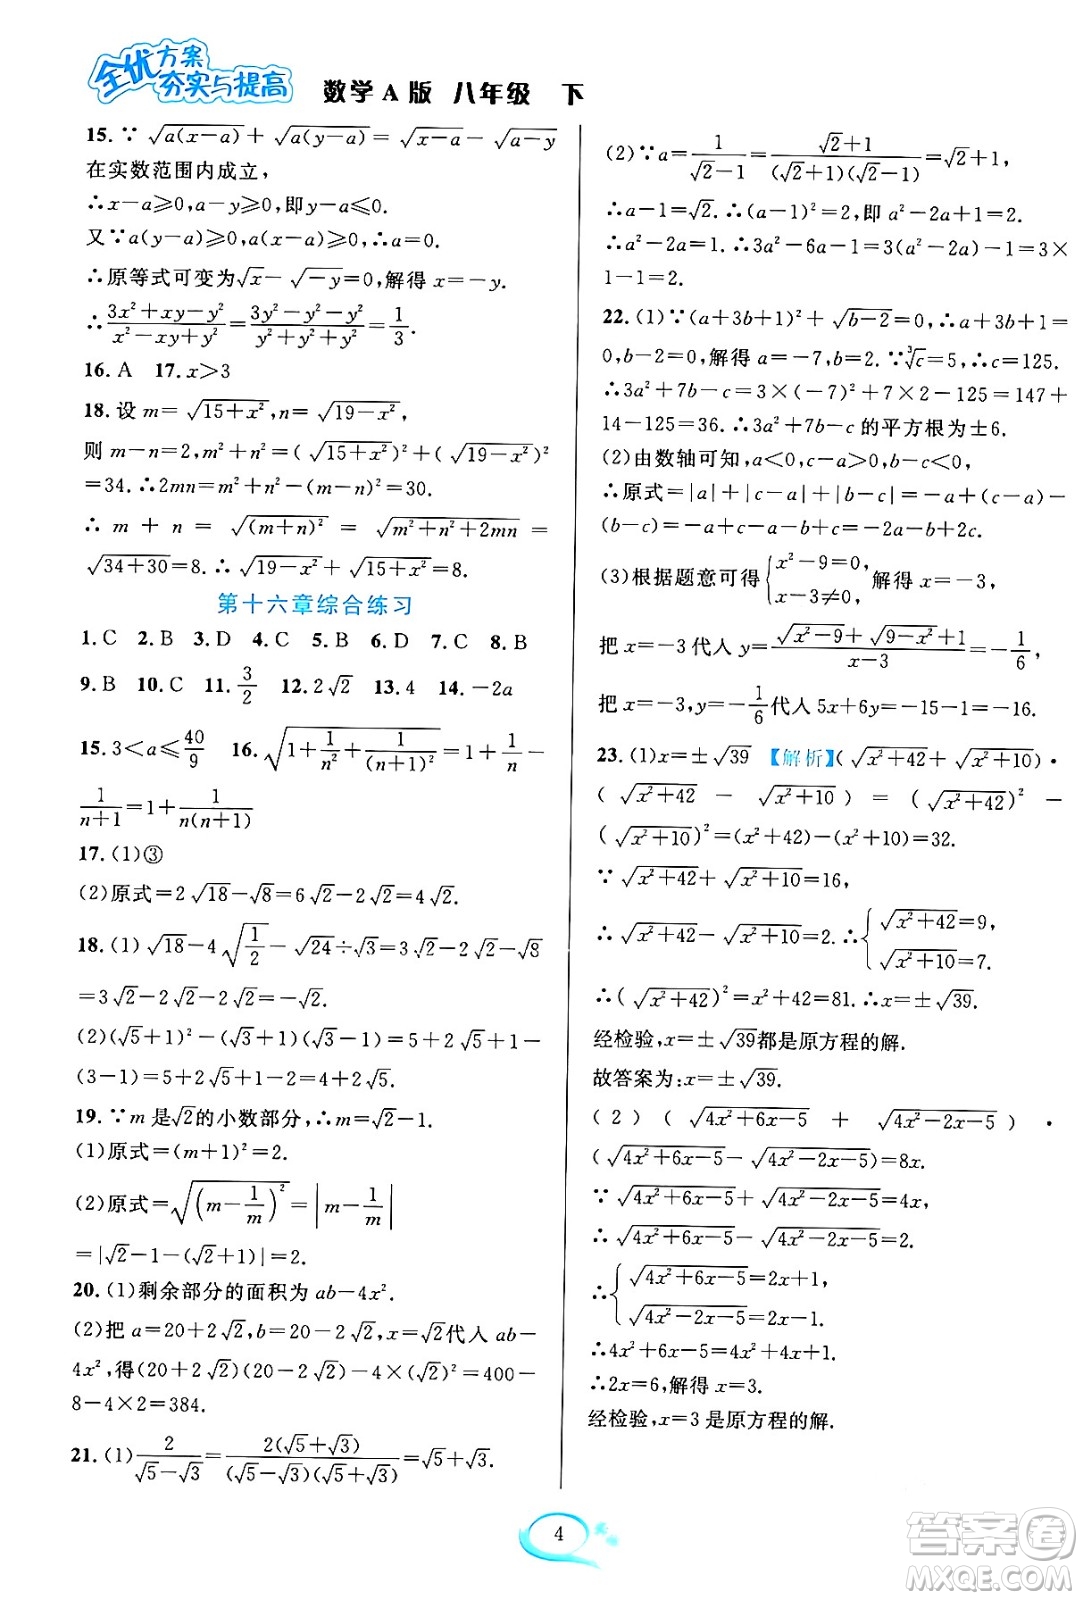 全优方案
夯实与提高
数学A版 八年级 下
15. ∵ √(a(x-a)) + √(a(y-a)) = √(x-a) - √(a-y)
在实数范围内成立,
∴x-a≥0,a-y≥0,即y-a≤0.
又∵a(y-a)≥0,a(x-a)≥0,∴a=0.
∴原等式可变为√x - √(-y)=0,解得 x=-y.
∴(3x²+xy-y²)/(x²-xy+y²)=(3y²-y²-y²)/(y²+y²+y²)=1/3.
16. A 17. x>3
18. 设 m=√(15+x²),n=√(19-x²),
则 m-n=2,m²+n²=(√(15+x²))²+(√(19-x²))²
=34.∴2mn=m²+n²-(m-n)²=30.
∴ m + n = √((m+n)²) = √(m²+n²+2mn) =
√(34+30)=8.∴√(19-x²)+√(15+x²)=8.
第十六章综合练习
1. C 2. B 3. D 4. C 5. C 6. D 7. C 8. B
9. B 10. C 11. 3/2 12. 2√2 13. 4 14. -2a
15. 3<a≤40/9 16. √(1+1/n²+1/(n+1)²)=1+1/n-
1/(n+1)=1+1/(n(n+1))
17. (1)③
(2)原式=2√18-√8=6√2-2√2=4√2.
18. (1)√18-4√(1/2)-√24÷√3=3√2-2√2-√8
=3√2-2√2-2√2=-√2.
(2)(√5+1)²-(√3+1)(√3-1)=5+2√5+1-
(3-1)=5+2√5+1-2=4+2√5.
19. ∵m 是√2的小数部分,∴m=√2-1.
(1)原式=(m+1)²=2.
(2)原式=√((m-1/m)²)=|m-1/m|
=|√2-1-(√2+1)|=2.
20. (1)剩余部分的面积为 ab-4x².
(2)把 a=20+2√2,b=20-2√2,x=√2代入 ab-
4x²,得(20+2√2)(20-2√2)-4×(√2)²=400-
8-4×2=384.
21. (1)2/(√5-√3)=2(√5+√3)/((√5-√3)(√5+√3))=√5+√3.
(2)∵a=1/(√2-1)=(√2+1)/((√2+1)(√2-1))=√2+1,
∴a-1=√2.∴(a-1)²=2,即 a²-2a+1=2.
∴a²-2a=1.∴3a²-6a-1=3(a²-2a)-1=3×
1-1=2.
22. (1)∵(a+3b+1)²+√(b-2)=0,∴a+3b+1=
0,b-2=0,解得 a=-7,b=2.∵∛c=5,∴c=125.
∴3a²+7b-c=3×(-7)²+7×2-125=147+
14-125=36.∴3a²+7b-c 的平方根为±6.
(2)由数轴可知,a<0,c-a>0,b-c<0,
∴原式=|a|+|c-a|+|b-c|=-a+(c-a)-
(b-c)=-a+c-a-b+c=-2a-b+2c.
(3)根据题意可得{x²-9=0, x-3≠0,解得 x=-3.
把 x=-3 代入 y=(√(x²-9)+√(9-x²)+1)/(x-3)=-1/6,
把 x=-3,y=-1/6代入 5x+6y=-15-1=-16.
23. (1)x=±√39 【解析】(√(x²+42)+√(x²+10))·
(√(x²+42) - √(x²+10)) = (√(x²+42))² -
(√(x²+10))²=(x²+42)-(x²+10)=32.
∵√(x²+42)+√(x²+10)=16,
∴√(x²+42)-√(x²+10)=2.∴{√(x²+42)=9, √(x²+10)=7.
∴(√(x²+42))²=x²+42=81.∴x=±√39.
经检验,x=±√39都是原方程的解.
故答案为:x=±√39.
(2) (√(4x²+6x-5) + √(4x²-2x-5))·
(√(4x²+6x-5)-√(4x²-2x-5))=8x.
∵√(4x²+6x-5)+√(4x²-2x-5)=4x,
∴√(4x²+6x-5)-√(4x²-2x-5)=2.
∴{√(4x²+6x-5)=2x+1, √(4x²-2x-5)=2x-1.
∴4x²+6x-5=4x²+4x+1.
∴2x=6,解得 x=3.
经检验,x=3 是原方程的解.
4
答案圈
MXQE.COM